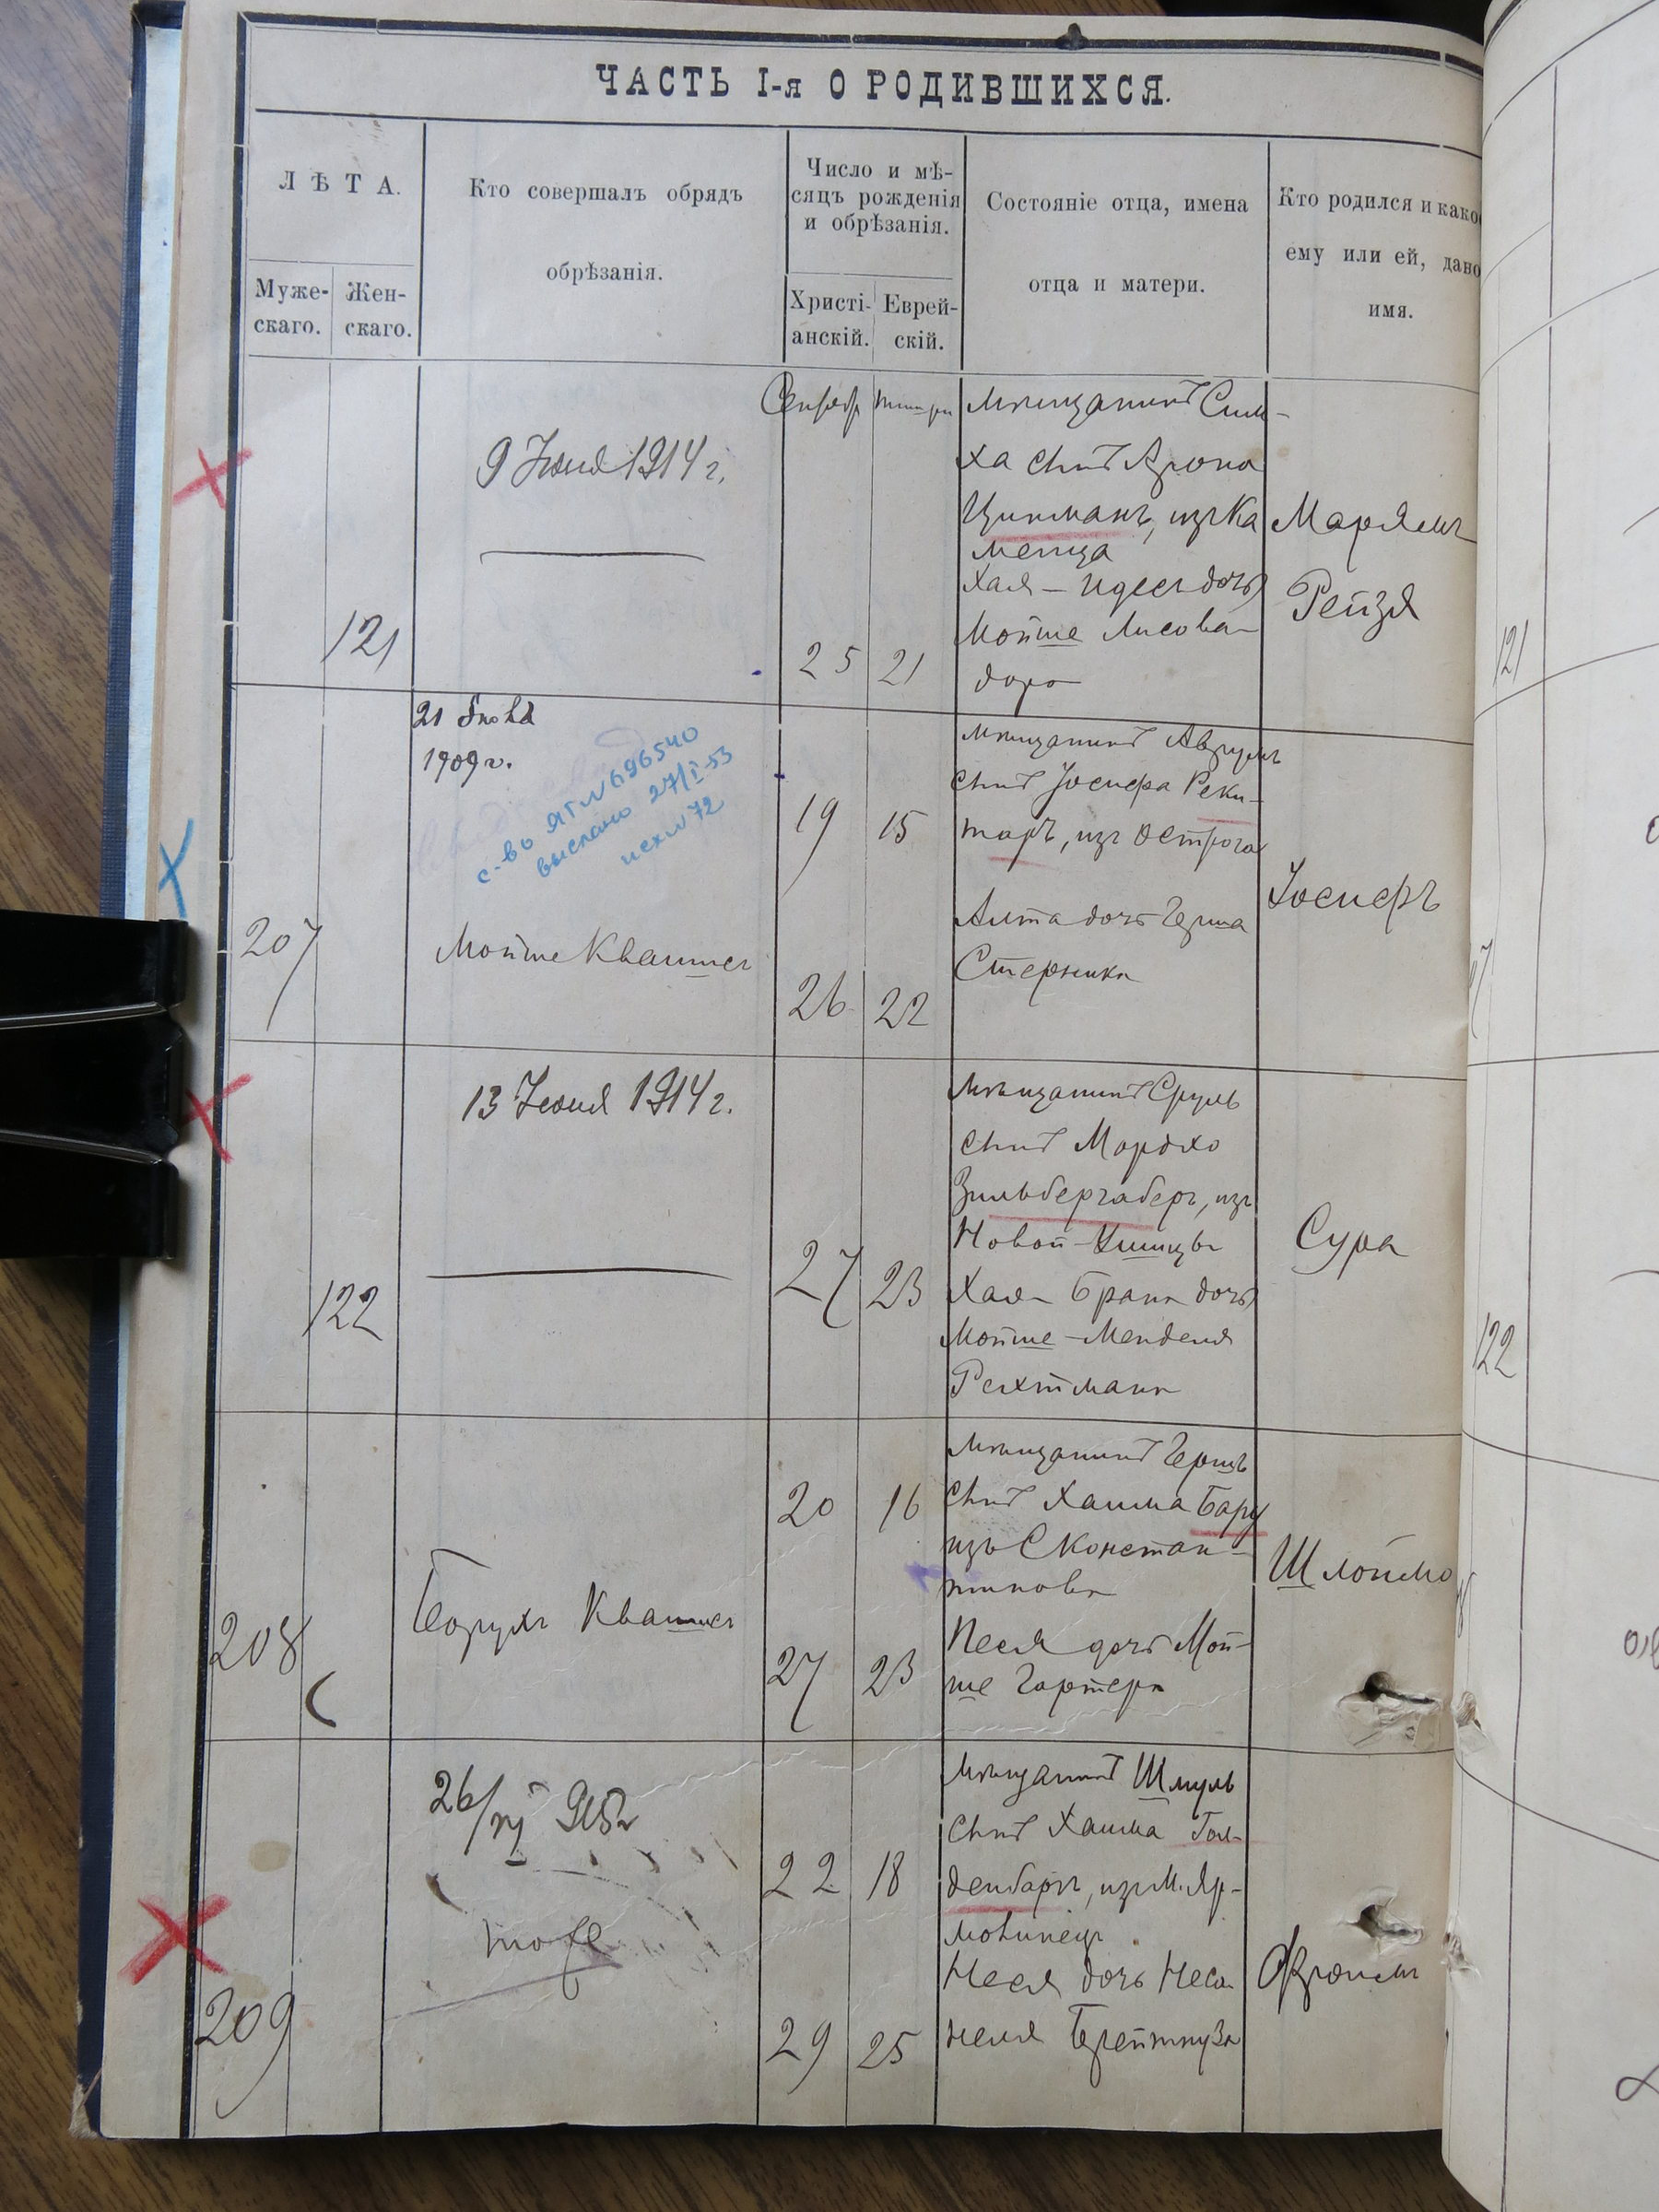 ЧАСТЬ I-я О РОДИВШИХСЯ.
ЛѢТА.
Муже-
скаго.
Жен-
скаго.
Кто совершалъ обрядъ
обрѣзанія.
Число и мѣ-
сяцъ рожденія
и обрѣзанія.
Христі-
анскій.
Еврей-
скій.
Состояніе отца, имена
отца и матери.
Кто родился и како
ему или ей, дано
имя.
121
9 Іюня 1914 г.
25
21
мѣщанинъ Сим-
ха сынъ Арона
Цинманъ, изъ Ка
менца
Хая - Идесь дочь
Мойше Лисова-
дора
Марямъ
Рейзя
207
21
1909 г.
с-во ЯГ №696540
выслано 27/I-53
исх №72
Мойше Квашисъ
19
15
26
22
мѣщанинъ Аврумъ
сынъ Іосифа Реки-
таръ, изъ Острога
Алта дочь Герша
Стерника
Іосифъ
122
13 Іюня 1914 г.
27
23
мѣщанинъ Сруль
сынъ Мордко
Зильбергаберъ, изъ
Новой-Ушицы
Хая - Брана дочь
Мойше-Менделя
Рехтмана
Сура
208
Борухъ Квашисъ
20
16
27
23
мѣщанинъ Гершъ
сынъ Хаима Бару
изъ С Констан-
тинова
Песя дочь Мой-
ше Гартера
Шлоймо
209
26/VI 915 г
22
18
29
25
мѣщанинъ Шмуль
сынъ Хаима Гол-
денбаръ, изъ М. Яр-
молинецъ
Неся дочь Неса-
неля
Фроимъ
121
122